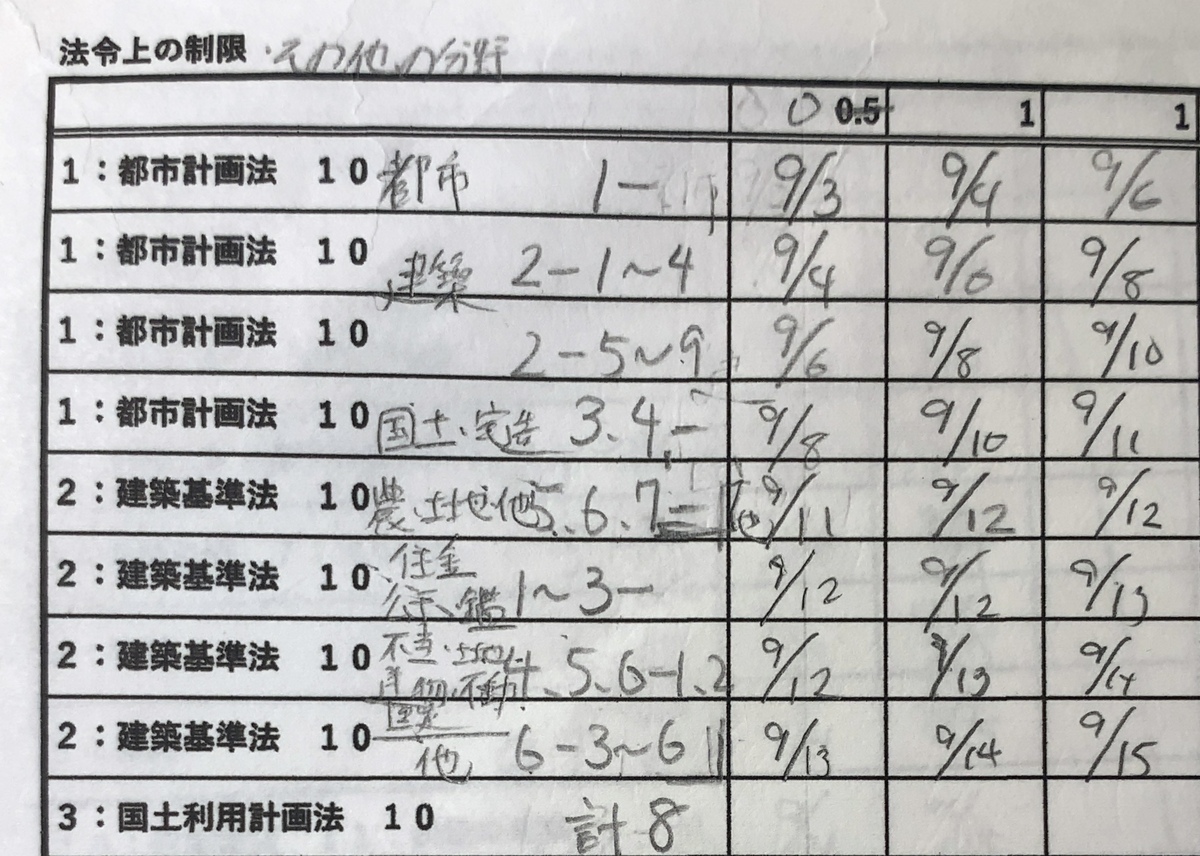 法令上の制限 ・その他の分野
0 0.5 1 1
1：都市計画法 10 都市 1− 9/3 9/4 9/6
1：都市計画法 10 建築 2−1〜4 9/4 9/6 9/8
1：都市計画法 10 2−5〜9 9/6 9/8 9/10
1：都市計画法 10 国土、宅造 3、4、− 9/8 9/10 9/11
2：建築基準法 10 農、土地、他 5、6、7− 9/11 9/12 9/12
2：建築基準法 10 住金 公示、鑑 1〜3− 9/12 9/12 9/13
2：建築基準法 10 不当・ 4、5、6−1、2 9/12 9/13 9/14
2：建築基準法 10 他 6−3〜6 9/13 9/14 9/15
3：国土利用計画法 10 計8